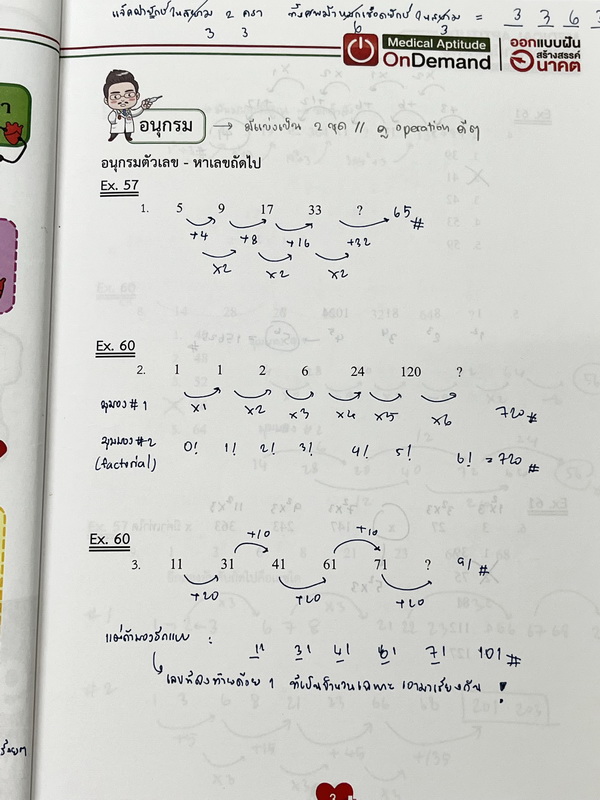 แจ็คฝาผู้กไว้ในสนาม 2 ครา ทั้งศพม้า ในสนาม = 3 3 6 3
3 3 6 3
Medical Aptitude
OnDemand
ออกแบบฝัน
สร้างสรรค์
อนาคต
อนุกรม → มีแบ่งเป็น 2 ชุด // ดู operation ดีๆ
อนุกรมตัวเลข - หาเลขถัดไป
Ex. 57
1. 5 9 17 33 ? 65 #
+4 +8 +16 +32
×2 ×2 ×2
Ex. 60
2. 1 1 2 6 24 120 ?
มุมมอง #1 ×1 ×2 ×3 ×4 ×5 ×6 720 #
มุมมอง #2 0! 1! 2! 3! 4! 5! 6! = 720 #
(factorial)
Ex. 60
+10 +10
3. 11 31 41 61 71 ? 91 #
+20 +20 +20
แต่ถ้ามองอีกแบบ :
11 31 41 61 71 101 #
เลขที่ลงท้ายด้วย 1 ที่เป็นจำนวนเฉพาะ เอามาเรียงกัน !
2